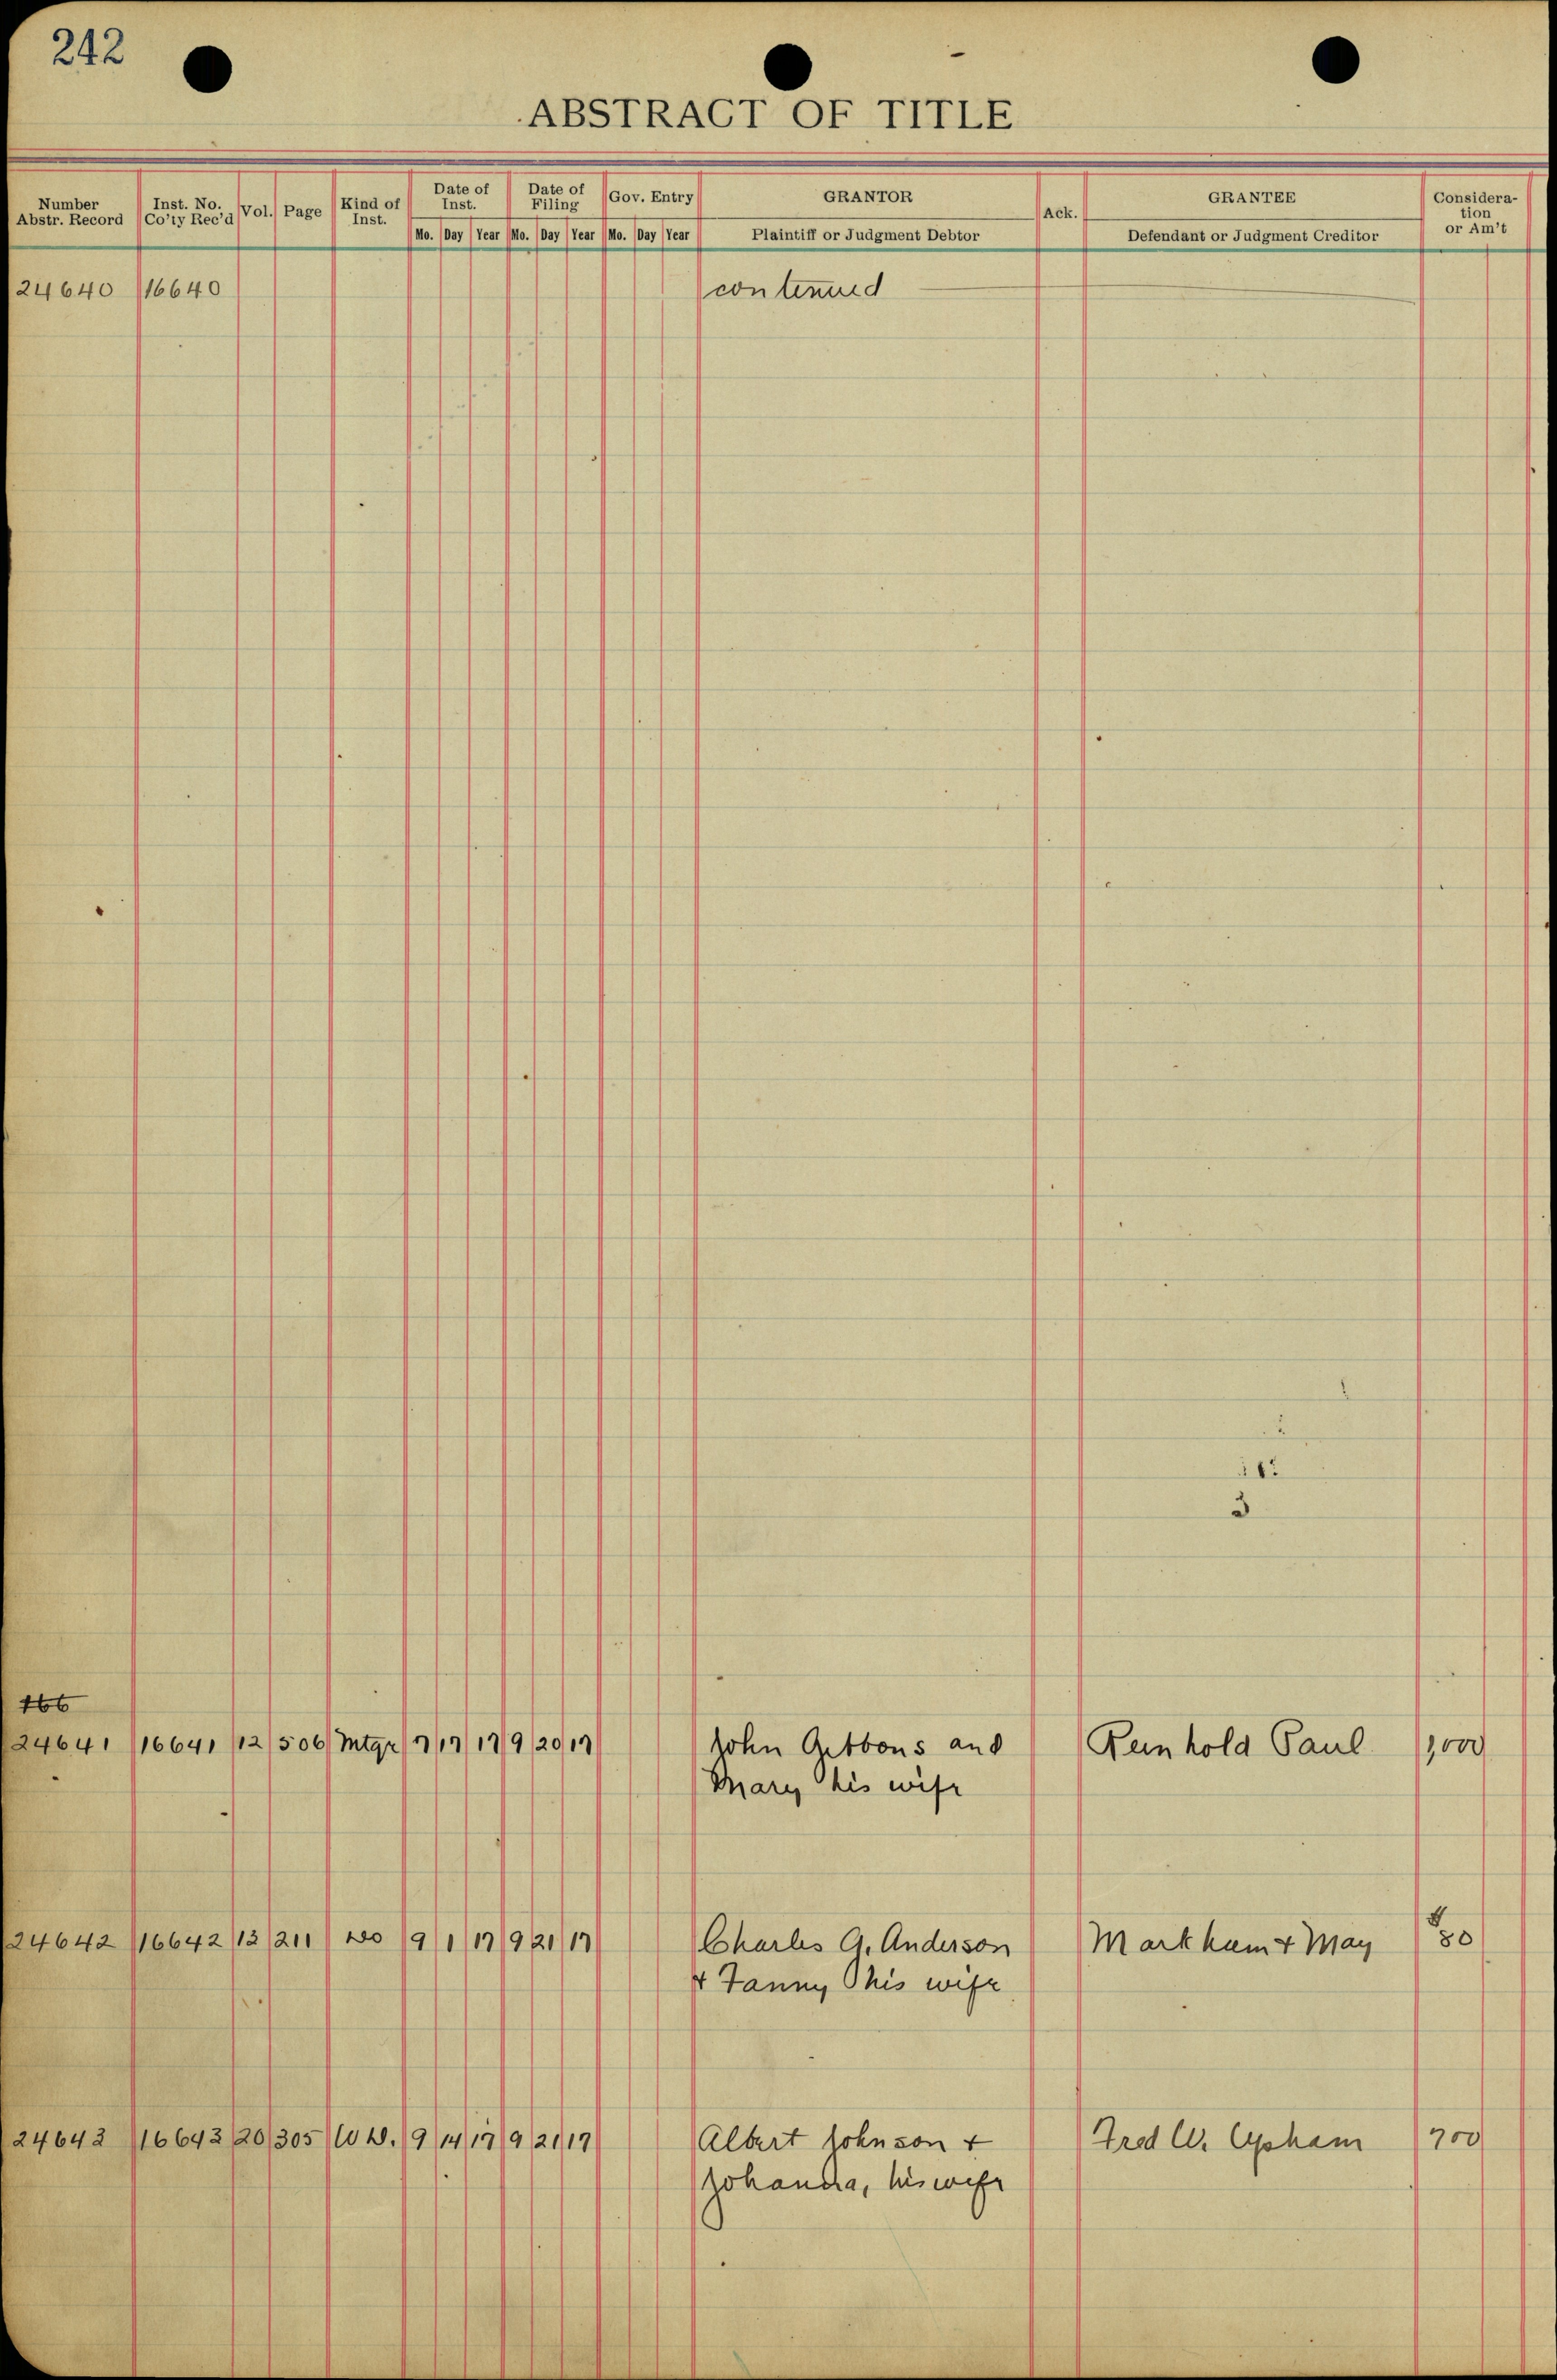 242
ABSTRACT OF TITLE
Number Abstr. Record | Inst. No. Co'ty Rec'd | Vol. | Page | Kind of Inst. | Date of Inst. | Date of Filing | Gov. Entry | GRANTOR | Ack. | GRANTEE | Considera-tion or Am't
Mo. Day Year Mo. Day Year Mo. Day Year Plaintiff or Judgment Debtor Defendant or Judgment Creditor
24640 16640 contenued
3
166
24641 16641 12 506 Mtge 7 17 17 9 20 17 John Gibbons and Reinhold Paul 1,000
Mary his wife
24642 16642 13 211 Do 9 1 17 9 21 17 Charles A. Anderson Markham & May 80
& Fanny his wife
24643 16643 20 305 W D. 9 14 17 9 21 17 Albert Johnson + Fred W. Upham 700
Johanna, his wife